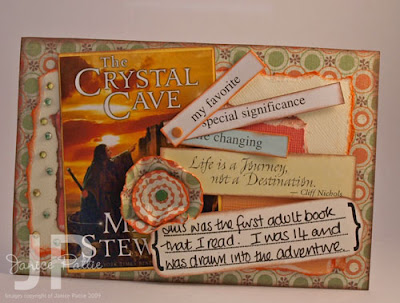 THE
CRYSTAL
CAVE
my favorite
special significance
changing
Life is a Journey,
not a Destination.
— Cliff Nichols
M
STEW
This was the first adult book
that I read. I was 14 and
was drawn into the adventure.
JP
Janice Pattie
Images copyright of Janice Pattie 2009